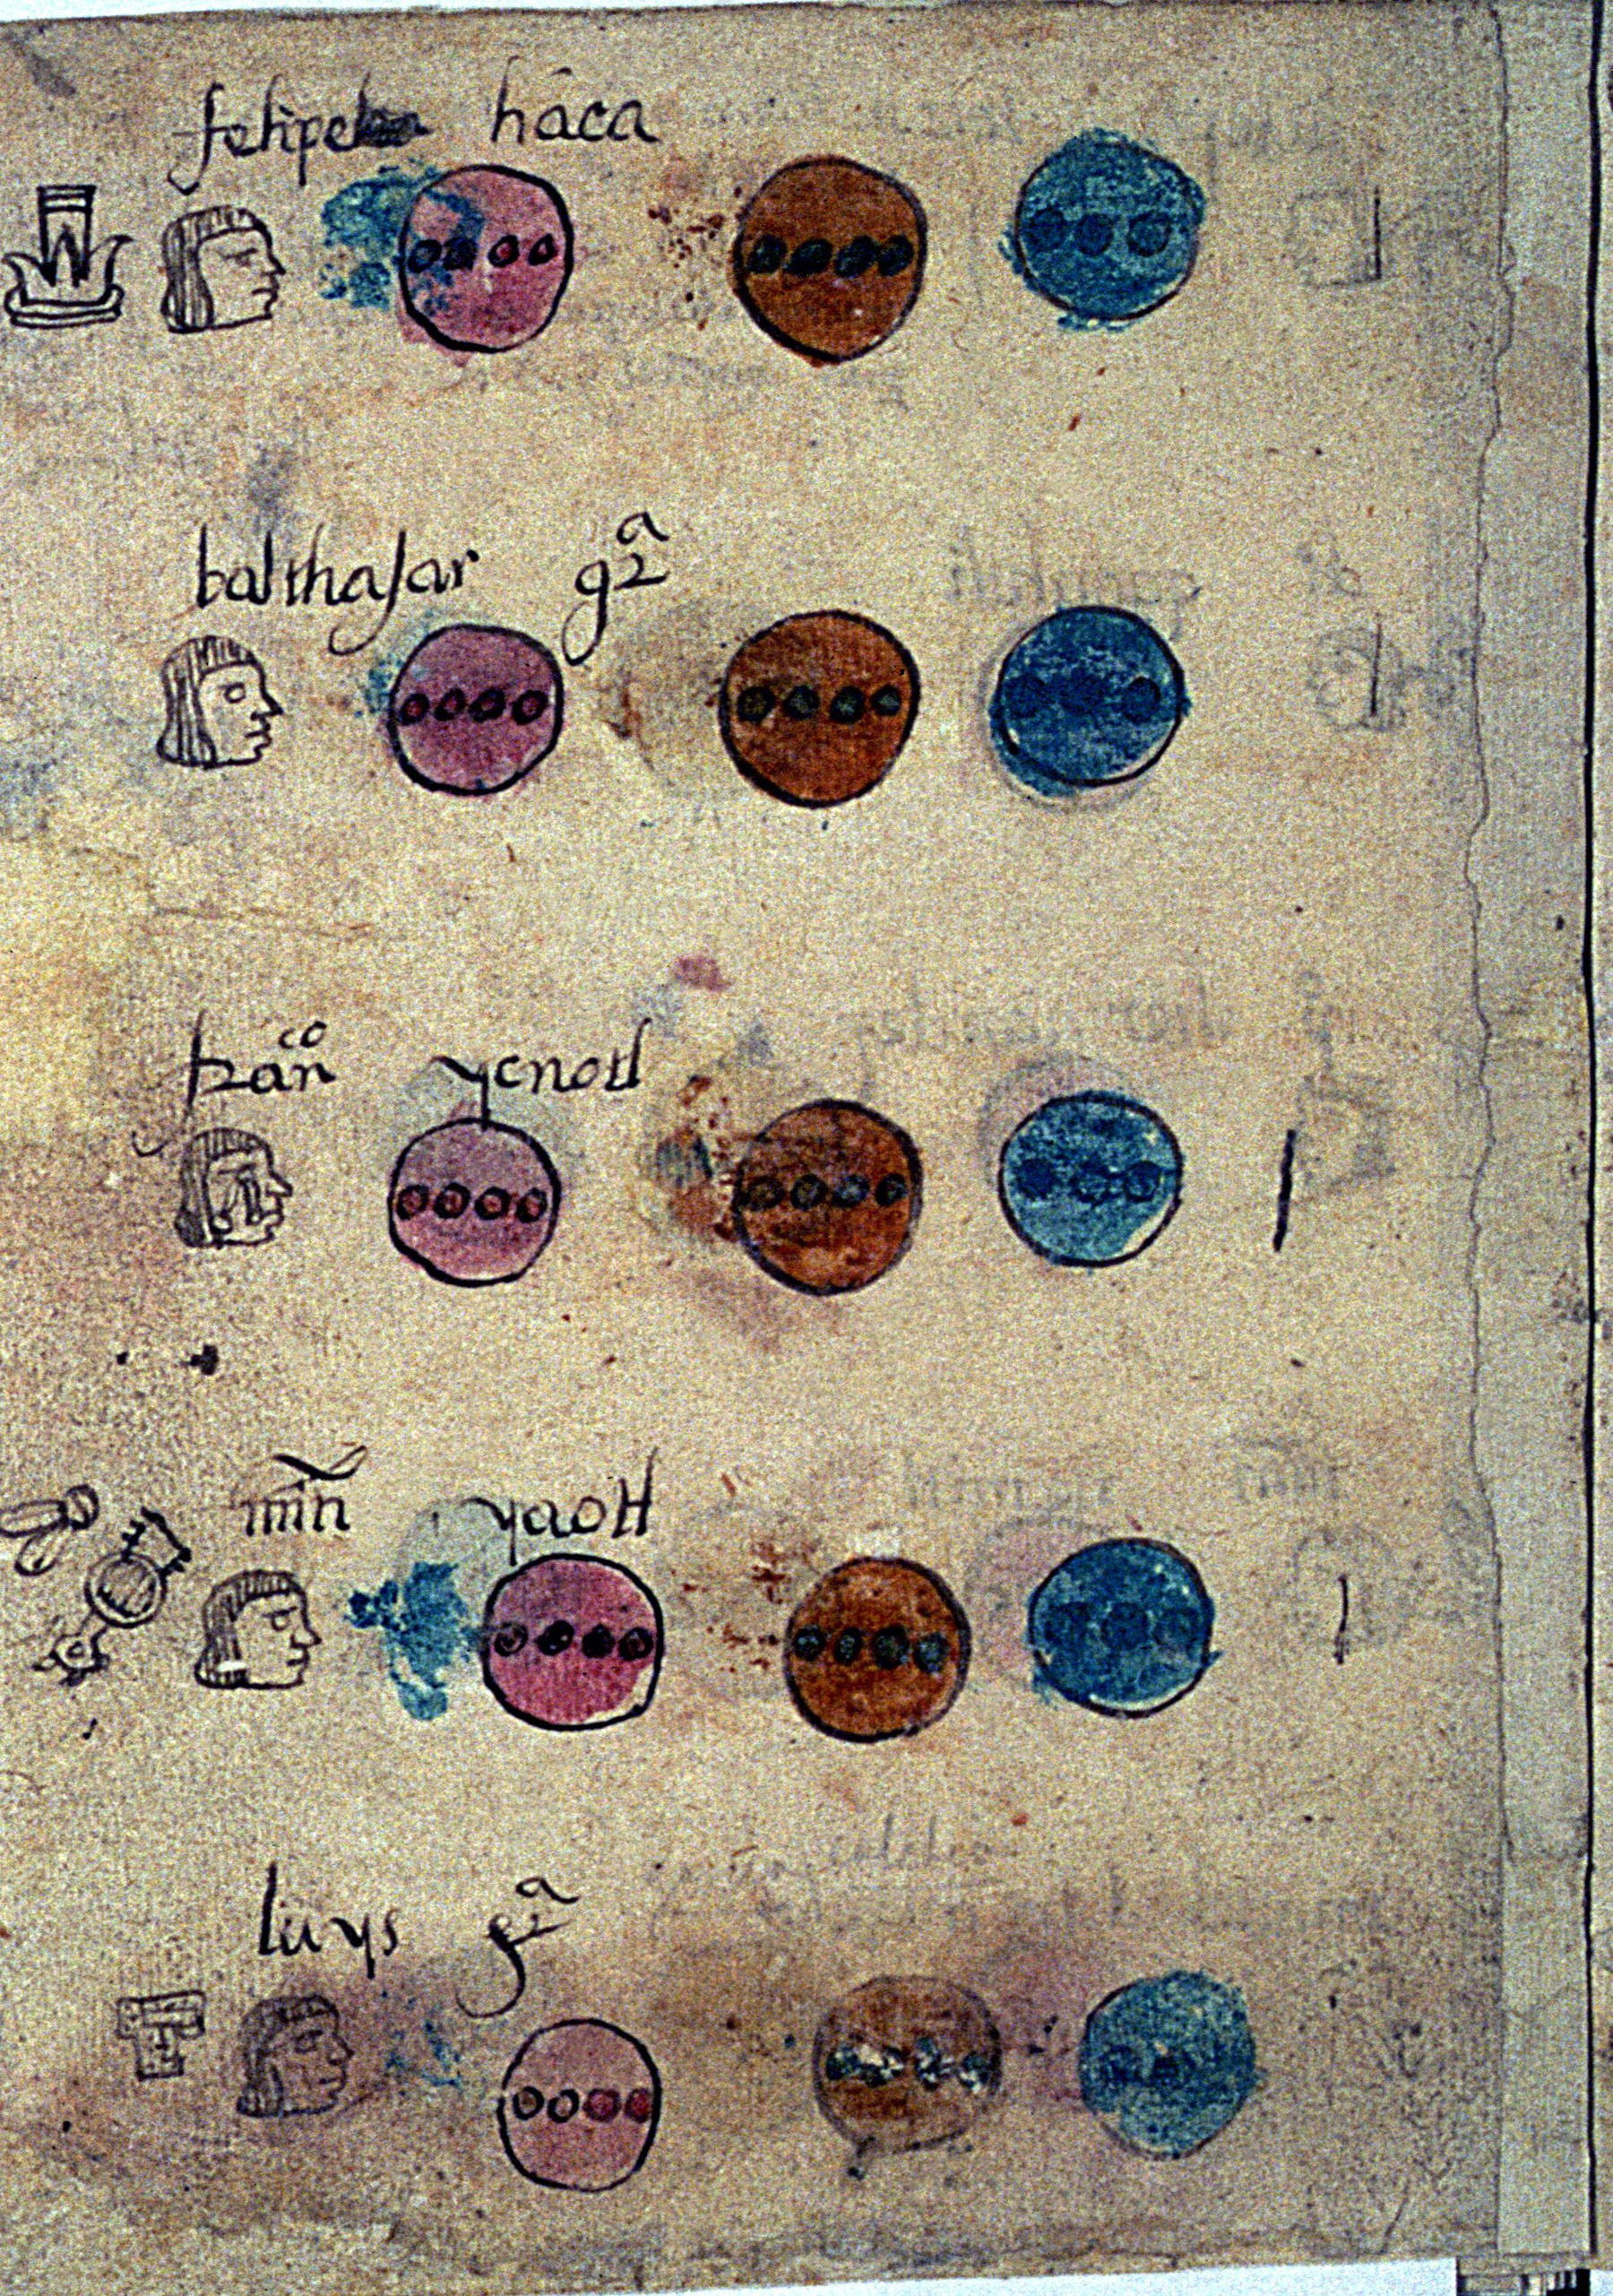 felipe haca
balthasar gªr
franco ycnotl
min yaotl
luys gªr